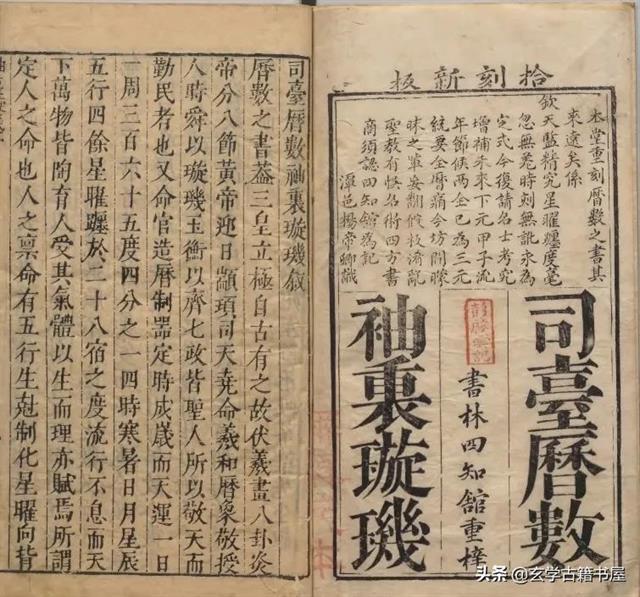 拾刻新板
本堂重刻曆數之書其
來遠矣係
欽天監精究星曜躔度毫
忽無差時刻無訛永為
定式今復請名士考究
增補未來下元甲子流
年節候兩全已為三元
統要全曆痛今坊間朦
昧之輩妄翻假救淆亂
聖教有悞名術四方書
商須認四知館為記
潭邑楊帝卿識
司臺曆數
書林四知舘重梓
袖裏璇璣
司臺曆數袖裏璇璣敘
曆數之書葢三皇立極自古有之故伏羲畫八卦炎
帝分八節黃帝迎日顓頊司天堯命羲和曆象敬授
人時舜以璇璣玉衡以齊七政皆聖人所以敬天而
勤民者也又命官造曆制器定時成歲而天運一日
一周三百六十五度四分之一四時寒暑日月星辰
五行四餘星曜躔於二十八宿之度流行不息而天
下萬物皆陶育人受其氣體以生而理亦賦焉所謂
定人之命也人之稟命有五行生剋制化星曜向背
头条@玄学古籍书屋